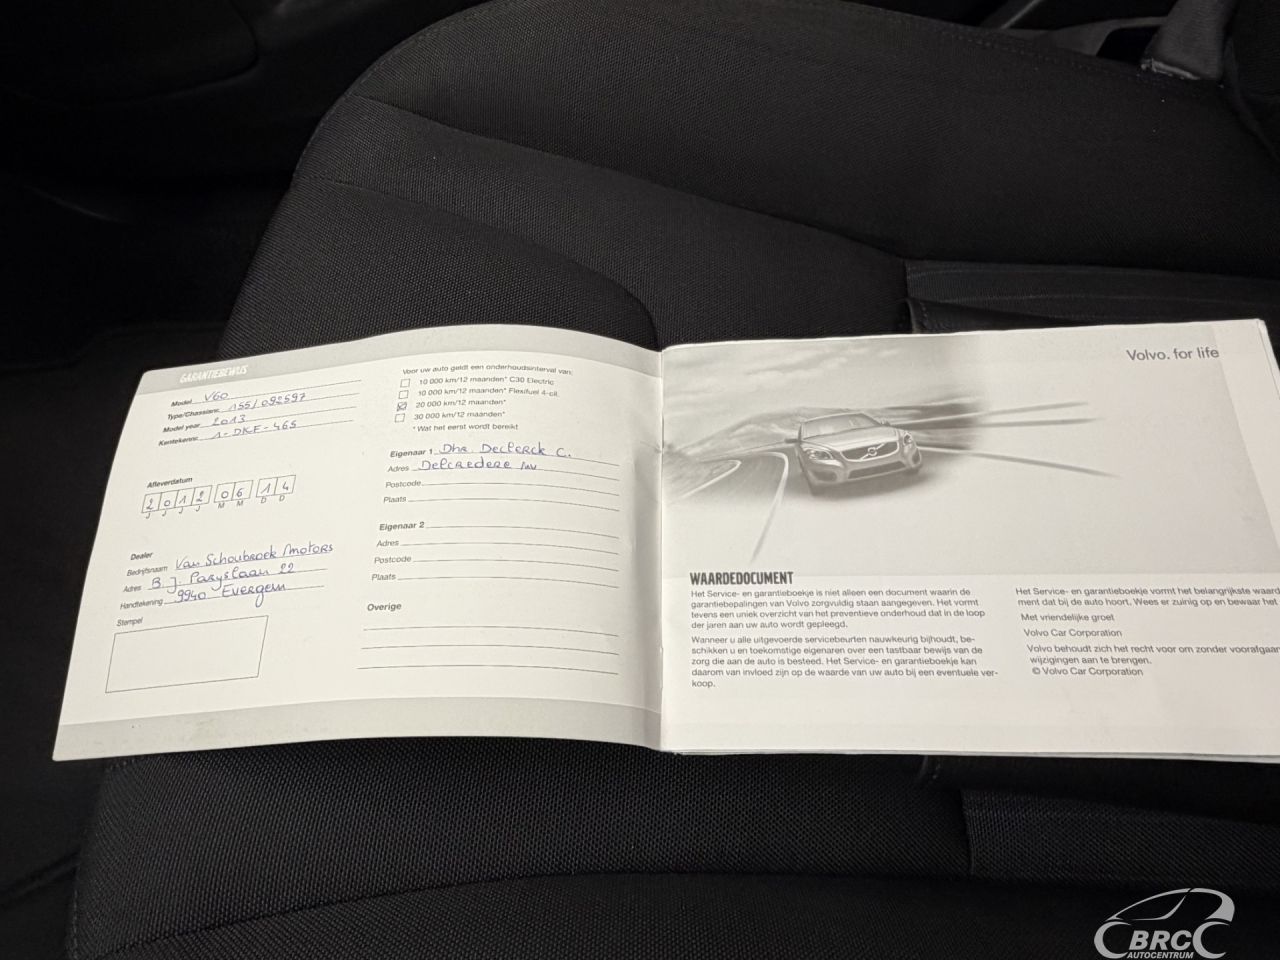 GARANTIEBEWIJS
Model V60
Type/Chassisnr. 155/092597
Model year 2013
Kentekennr. 1-DKF-465
Afleverdatum
2 0 1 2 0 6 1 4
J J J J M M D D
Dealer
Bedrijfsnaam Van Schoubroek Motors
Adres B. J. Paryslaan 22
Handtekening 9940 Evergem
Stempel
Voor uw auto geldt een onderhoudsinterval van:
10 000 km/12 maanden* C30 Electric
10 000 km/12 maanden* Flexifuel 4-cil.
20 000 km/12 maanden*
30 000 km/12 maanden*
* Wat het eerst wordt bereikt
Eigenaar 1 Dhr. Declerck C.
Adres Delcredere nv
Postcode
Plaats
Eigenaar 2
Adres
Postcode
Plaats
Overige
Volvo. for life
WAARDEDOCUMENT
Het Service- en garantieboekje is niet alleen een document waarin de
garantiebepalingen van Volvo zorgvuldig staan aangegeven. Het vormt
tevens een uniek overzicht van het preventieve onderhoud dat in de loop
der jaren aan uw auto wordt gepleegd.
Wanneer u alle uitgevoerde servicebeurten nauwkeurig bijhoudt, be-
schikken u en toekomstige eigenaren over een tastbaar bewijs van de
zorg die aan de auto is besteed. Het Service- en garantieboekje kan
daarom van invloed zijn op de waarde van uw auto bij een eventuele ver-
koop.
Het Service- en garantieboekje vormt het belangrijkste waard
ment dat bij de auto hoort. Wees er zuinig op en bewaar het
Met vriendelijke groet
Volvo Car Corporation
Volvo behoudt zich het recht voor om zonder voorafgaan
wijzigingen aan te brengen.
© Volvo Car Corporation
BRC
AUTOCENTRUM